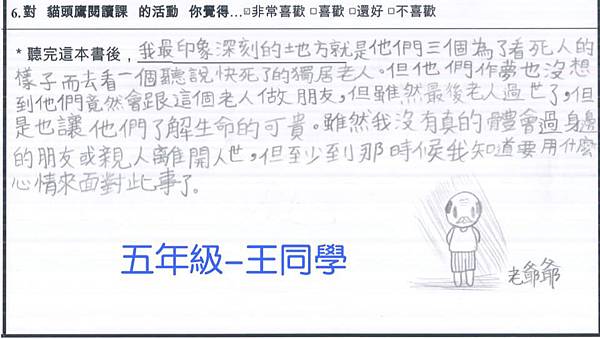 6.對 貓頭鷹閱讀課 的活動 你覺得…☑非常喜歡 □喜歡 □還好 □不喜歡
* 聽完這本書後，我最印象深刻的地方就是他們三個為了看死人的
樣子而去看一個聽說快死了的獨居老人。但他們作夢也沒想
到他們竟然會跟這個老人做朋友，但雖然最後老人過世了，但
是也讓他們了解生命的可貴。雖然我沒有真的體會過身邊
的朋友或親人離開人世，但至少到那時候我知道要用什麼
心情來面對此事了。
五年級-王同學
老爺爺